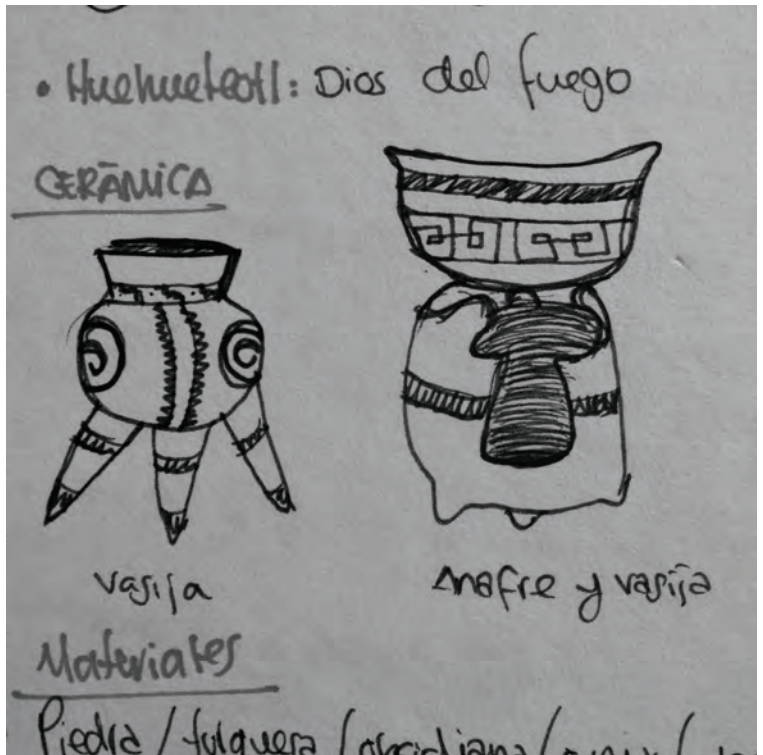 • Huehueteotl: Dios del fuego
CERÁMICA
Vasija
Anafre y vasija
Materiales
Piedra / fulguera / obsidiana /